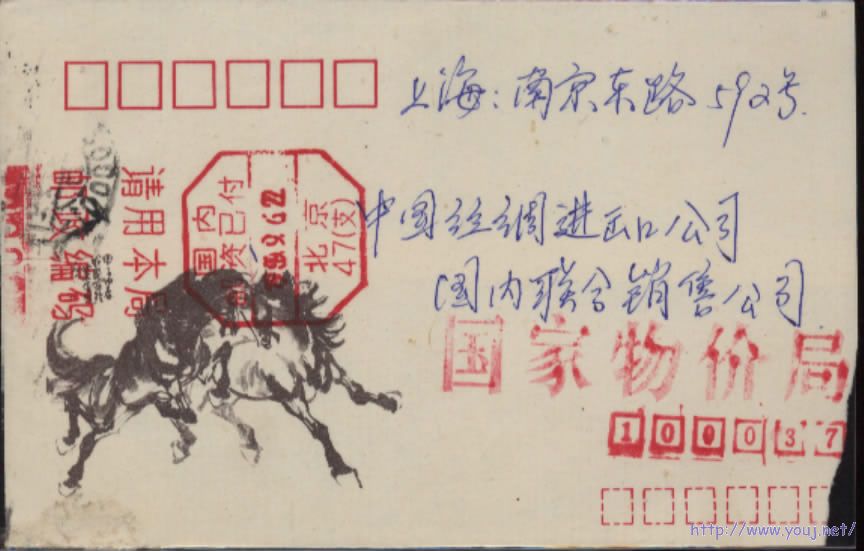 上海：南京东路592号.
中国丝绸进出口公司
国内联合销售公司
国家物价局
100037
国内
邮资已付
北京
47(支)
请用本局
http://www.youj.net/